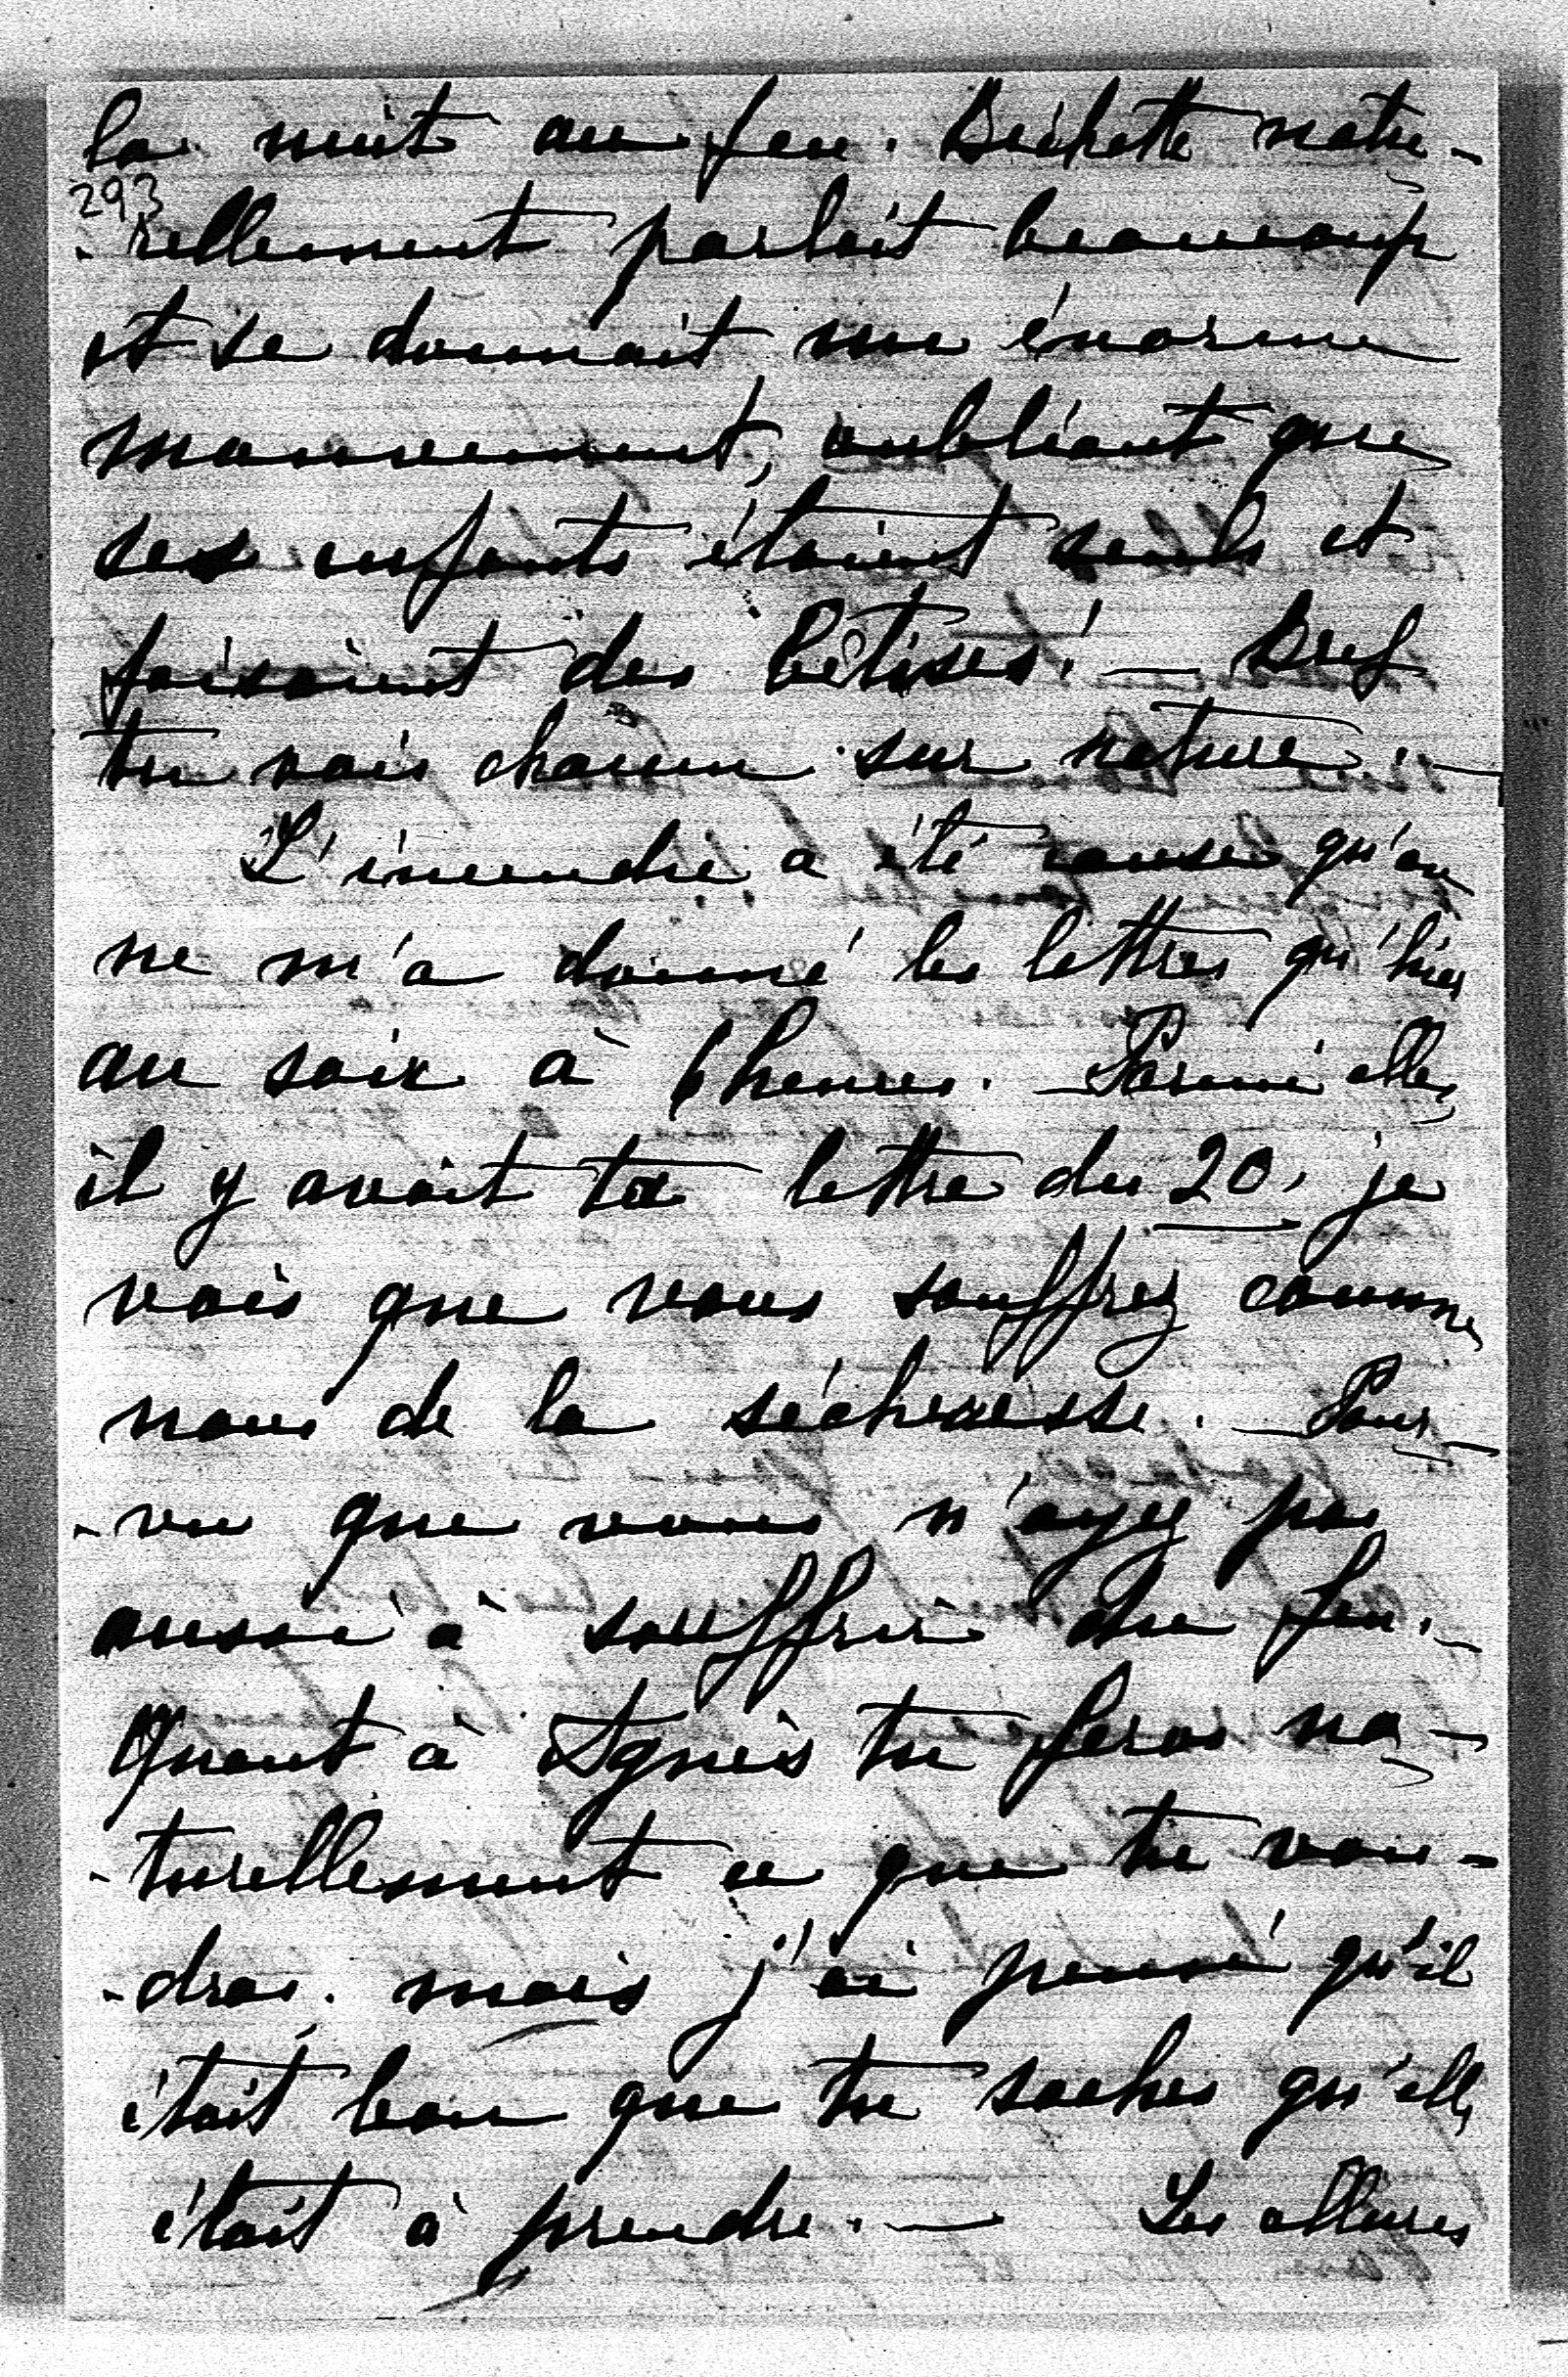 la nuit au feu. Bichette natu-
293
-rellement parlait beaucoup
et se donnait un énorme
mouvement, oubliant que
ses enfants étaient seuls et
faisaient des bêtises! — Bref
tu vois chacun sur nature. —
L'incendie a été cause qu'on
ne m'a donné les lettres qu'hier
au soir à 6 heures. — Parmi elles
il y avait ta lettre du 20, je
vois que vous souffrez comme
nous de la sécheresse. — Pour-
-vu que vous n'ayez pas
aussi à souffrir du feu. —
Quant à Agnès tu feras na-
-turellement ce que tu vou-
-dras. mais j'ai pensé qu'il
était bon que tu saches qu'elle
était à prendre. — Les allures